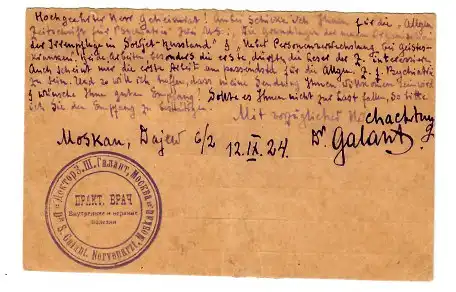 Hochgeehrter Herr Geheimrat! Anbei schicke ich Ihnen für die „Allgem.
Zeitschrift für Psychiatrie" zwei MS.: „Die Grundlagen der neuen Organisation
der Irrenpflege in Sowjet-Russland" & „Ueber Personenverwechslung bei Geistes-
kranken". Beide Arbeiten besonders die erste dürfte die Leser der Z. interessieren.
Auch scheint mir die erste Arbeit am passendsten für die Allgem. Z. f. Psychiatrie
zu sein. Und so will ich hoffen, dass meine Sendung Ihnen willkommen sein wird
& wünsche Ihnen guten Empfang! Sollte es Ihnen nicht zur Last fallen, so bitte
ich Sie den Empfang zu bestätigen.
Mit vorzüglicher Hochachtung
Moskau, Dajew 6/2 12.IX.24. Dr Galant
Доктор И. Ш. Галант. Москва
Dr. S. Galant. Nervenarzt. Moskau
ПРАКТ. ВРАЧ
Внутренние и нервные
болезни